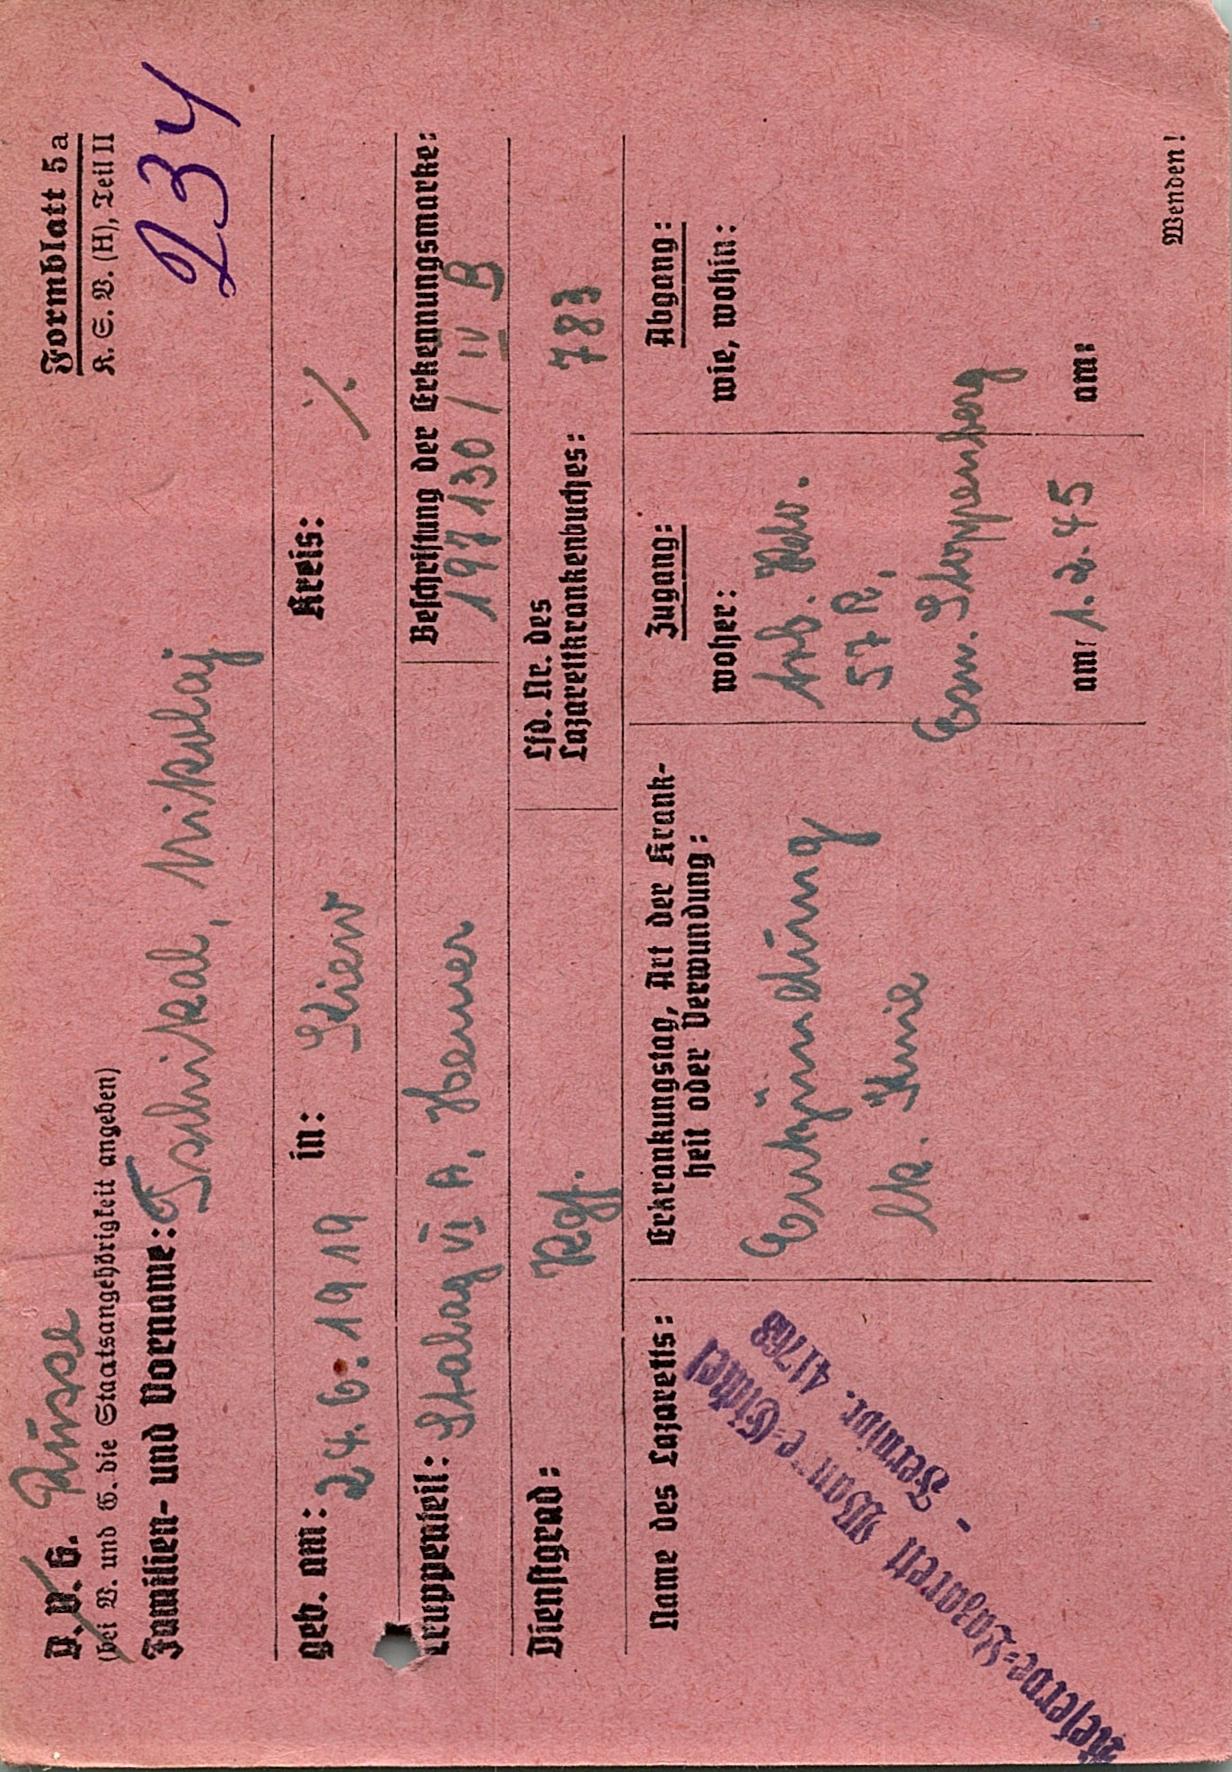 Formblatt 5a
K. S. V. (H), Teil II
234
D. V. G. Russe
(bei V. und G. die Staatsangehörigkeit angeben)
Familien- und Vorname: Tschikal, Nikolaj
geb. am: 24.6.1919 in: Kiew Kreis: ٪
Truppenteil: Stalag VI A, Hemer
Beschriftung der Erkennungsmarke:
197130 / IV B
Dienstgrad: Kgf.
Lfd. Nr. des
Lazarettkrankenbuches: 783
Name des Lazaretts:
Reserve-Lazarett Wanne-Eickel
- Fernspr. 41768
Erkrankungstag, Art der Krank-
heit oder Verwundung:
Entzündung
lk. Knie
Zugang:
woher:
Arb. Kdo.
57 R,
Essen. Stoppenberg
am: 1.2.45
Abgang:
wie, wohin:
am:
Wenden!